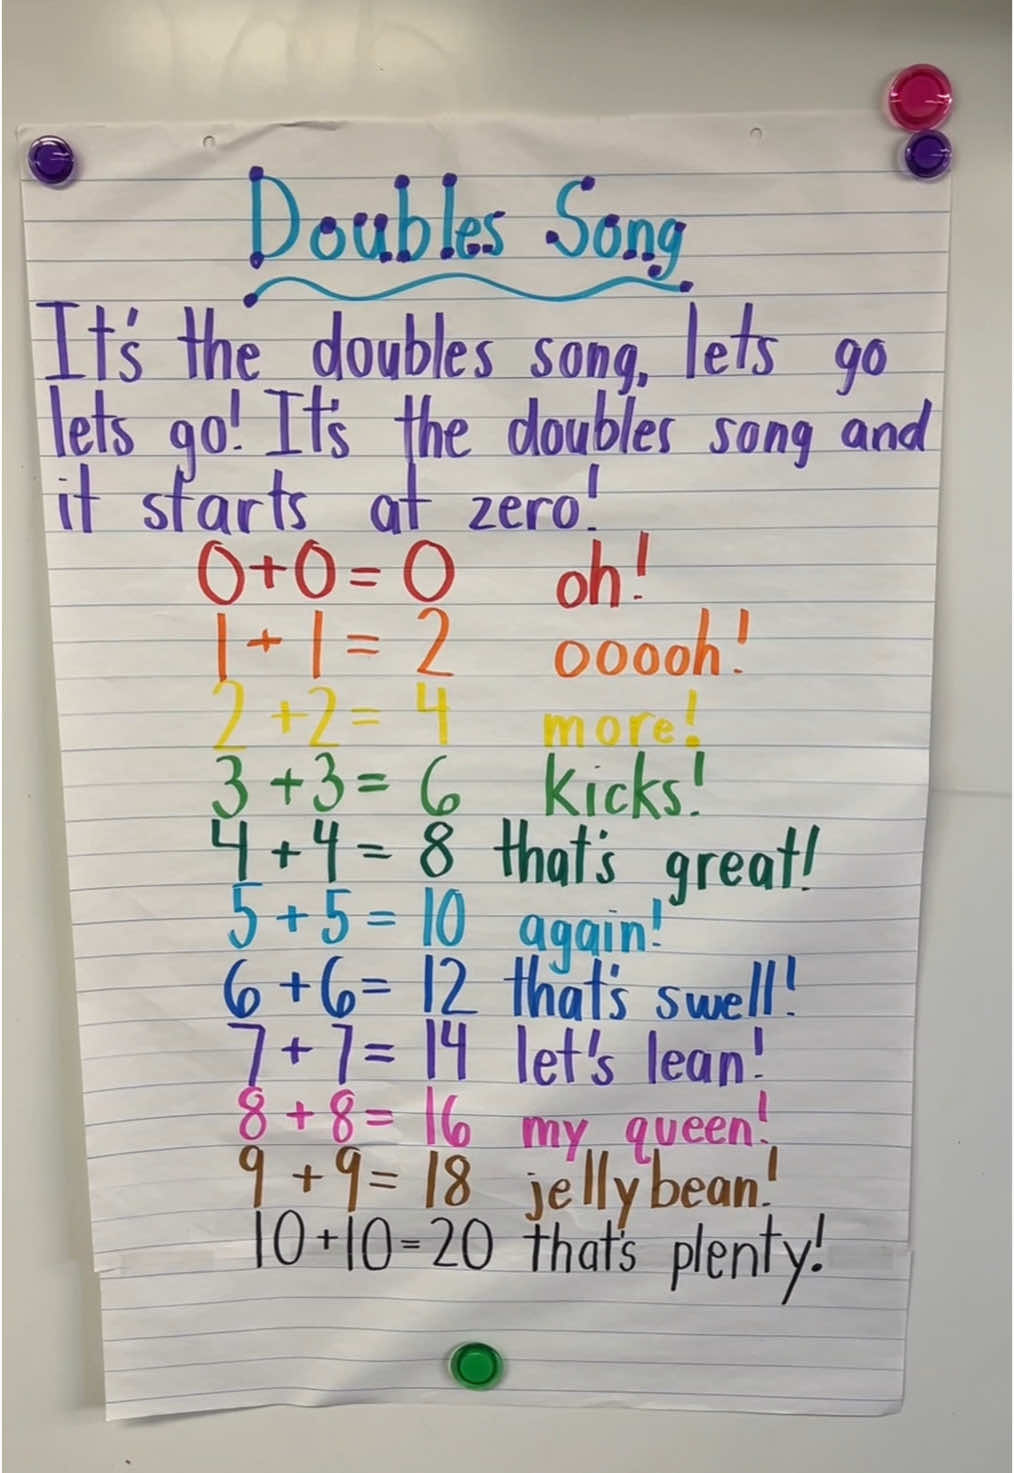 Doubles Song
It's the doubles song, lets go
lets go! It's the doubles song and
it starts at zero!
0+0=0 oh!
1+1=2 ooooh!
2+2=4 more!
3+3=6 kicks!
4+4=8 that's great!
5+5=10 again!
6+6=12 that's swell!
7+7=14 let's lean!
8+8=16 my queen!
9+9=18 jellybean!
10+10=20 that's plenty!